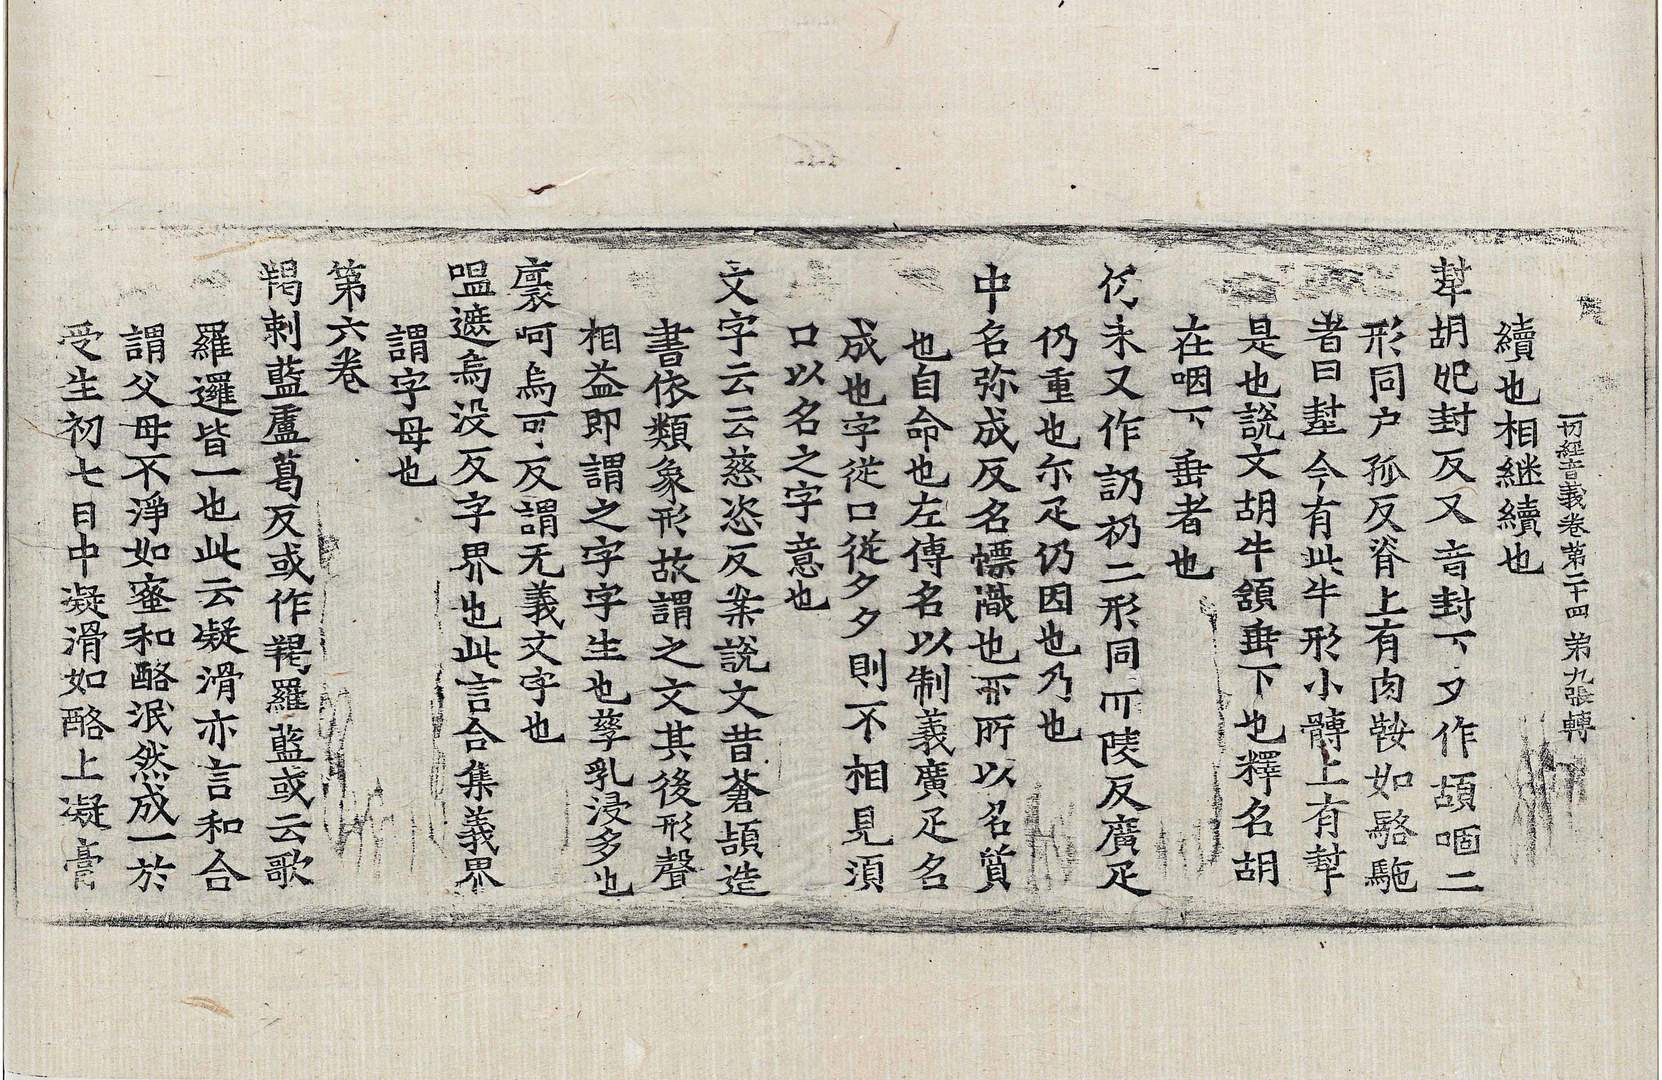 一切經音義卷第二十四 第九張 轉
續也相継續也
犎胡妃封反又音封下夕作頡咽二
形同戶孤反脊上有肉𩍿如駱駞
者曰犎今有此牛形小髆上有犎
是也說文胡牛頷垂下也釋名胡
在咽下垂者也
仍未又作訒礽二形同而陵反廣疋
仍重也尒疋仍因也乃也
中名弥成反名慓幟也所以名質
也自命也左傳名以制義廣疋名
成也字從口從夕夕則不相見須
口以名之字意也
文字云云慈恣反案說文昔蒼頡造
書依類象形故謂之文其後形聲
相益即謂之字字生也孳乳浸多也
裛呵烏可反謂无義文字也
嗢遮烏没反字界也此言合集義界
謂字母也
第六卷
羯剌藍盧葛反或作羯羅藍或云歌
羅邏皆一也此云凝滑亦言和合
謂父母不淨如蜜和酪泯然成一於
受生初七日中凝滑如酪上凝膏